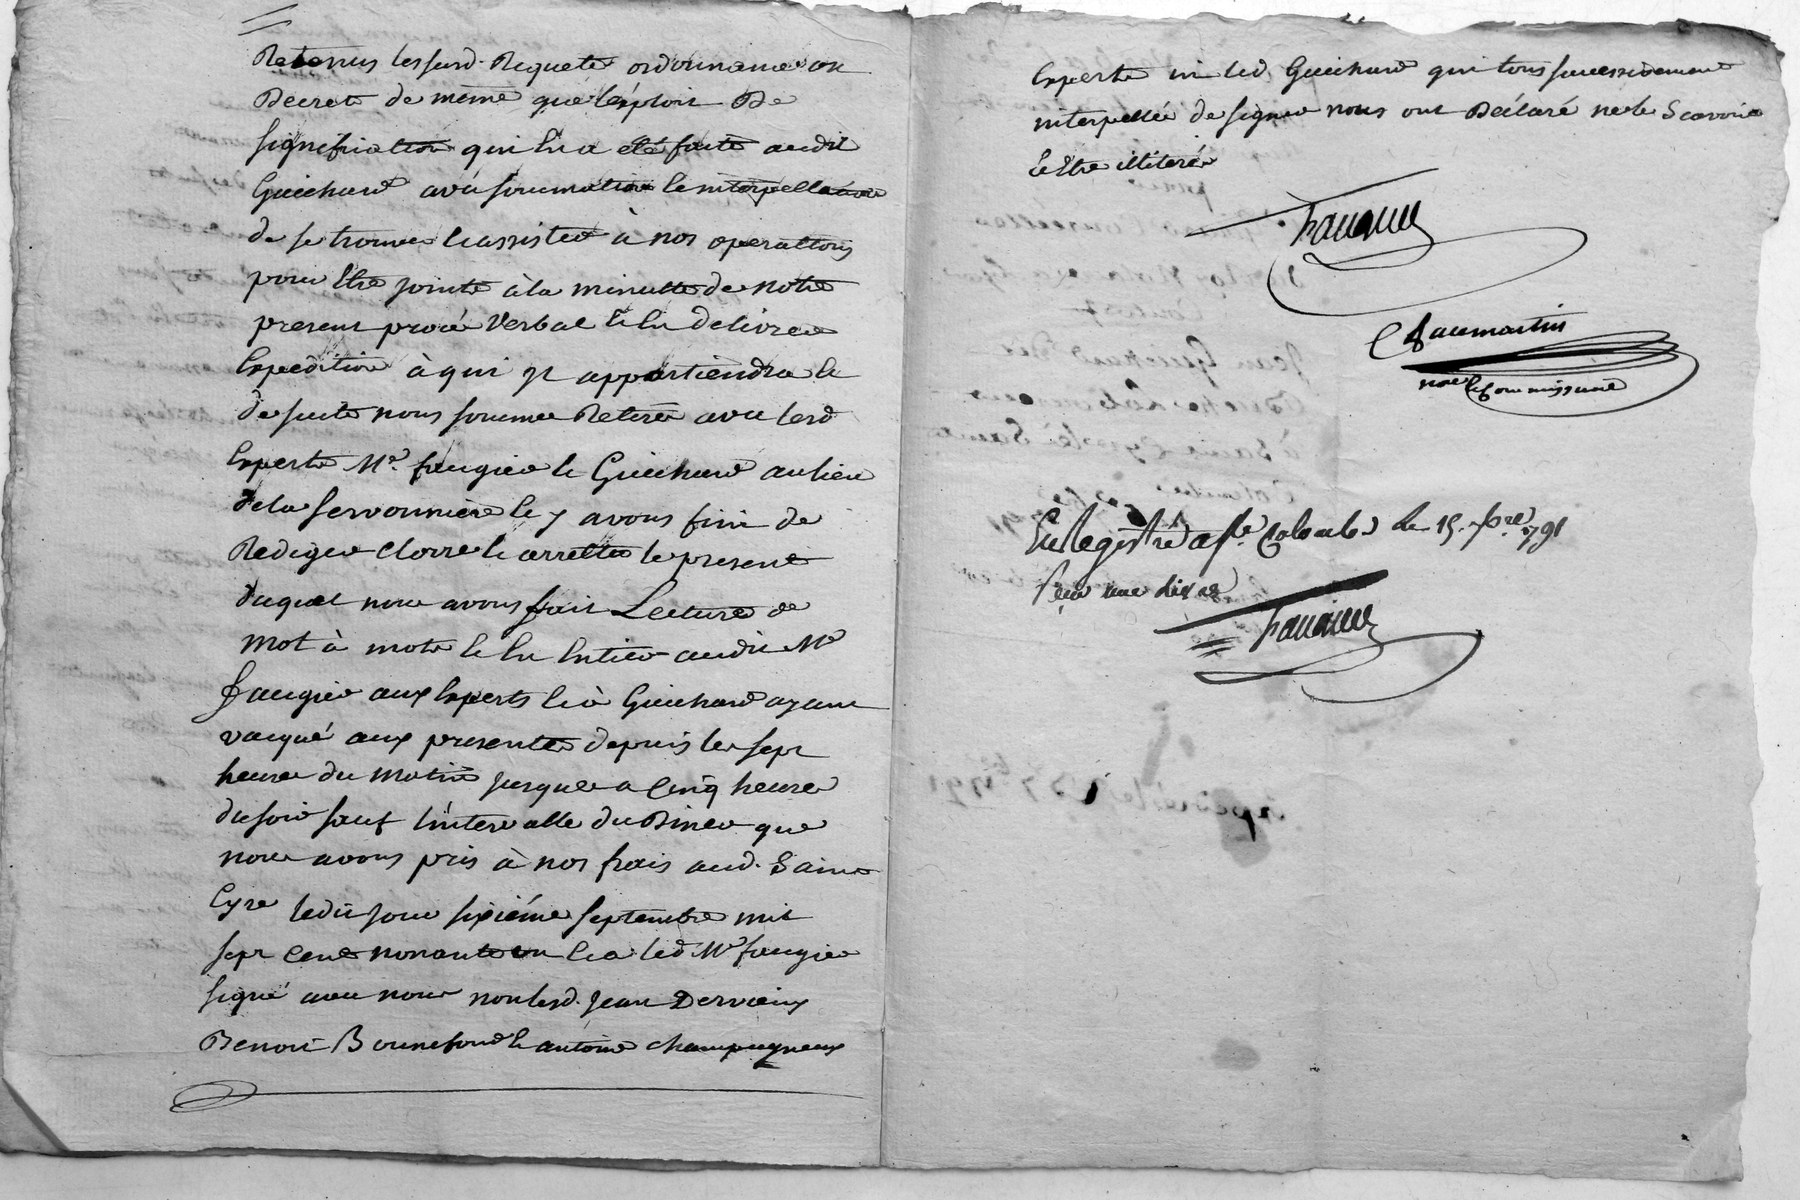 Retenus lesusd. Requete ordonnance ou
Decret de meme que l'exploit De
signification qui lui a eté faite audit
Guichard avec sommation et interpellation
de se trouver et assister à nos operations
pour Etre jointe à la minutte de notre
present procé Verbal et En delivrer
Expedition à qui Il appartiendra et
de suite nous somme Retiré avec lesd
Experts Mr. faugier et Guichard au lieu
de la Servonniere et y avons fini de
Rediger Clorre et arretter le present
duquel nous avons fait Lecture de
mot à mot et En Entier audit Mr
faugier aux Experts et à Guichard ayant
vacqué aux presentes depuis les sept
heures du matin jusques a Cinq heures
du soir sauf l'intervalle du Diner que
nous avons pris à nos frais aud. Saint
Cyre ledit jour sixiéme septembre mil
sept Cent nonante un et a led Mr faugier
signé avec nous non lesd. Jean Dervieux
Benoit Bonnefond et antoine Champagneux
Experts ni led Guichard qui tous successivement
interpellée de signer nous ont Déclaré ne le Scavoir
et Etre illiteré
faugier
Chaumartin
nore et Commissaire
Enregistré a Ste Colombe le 15. 7bre 1791
Reçu une livre
faugier